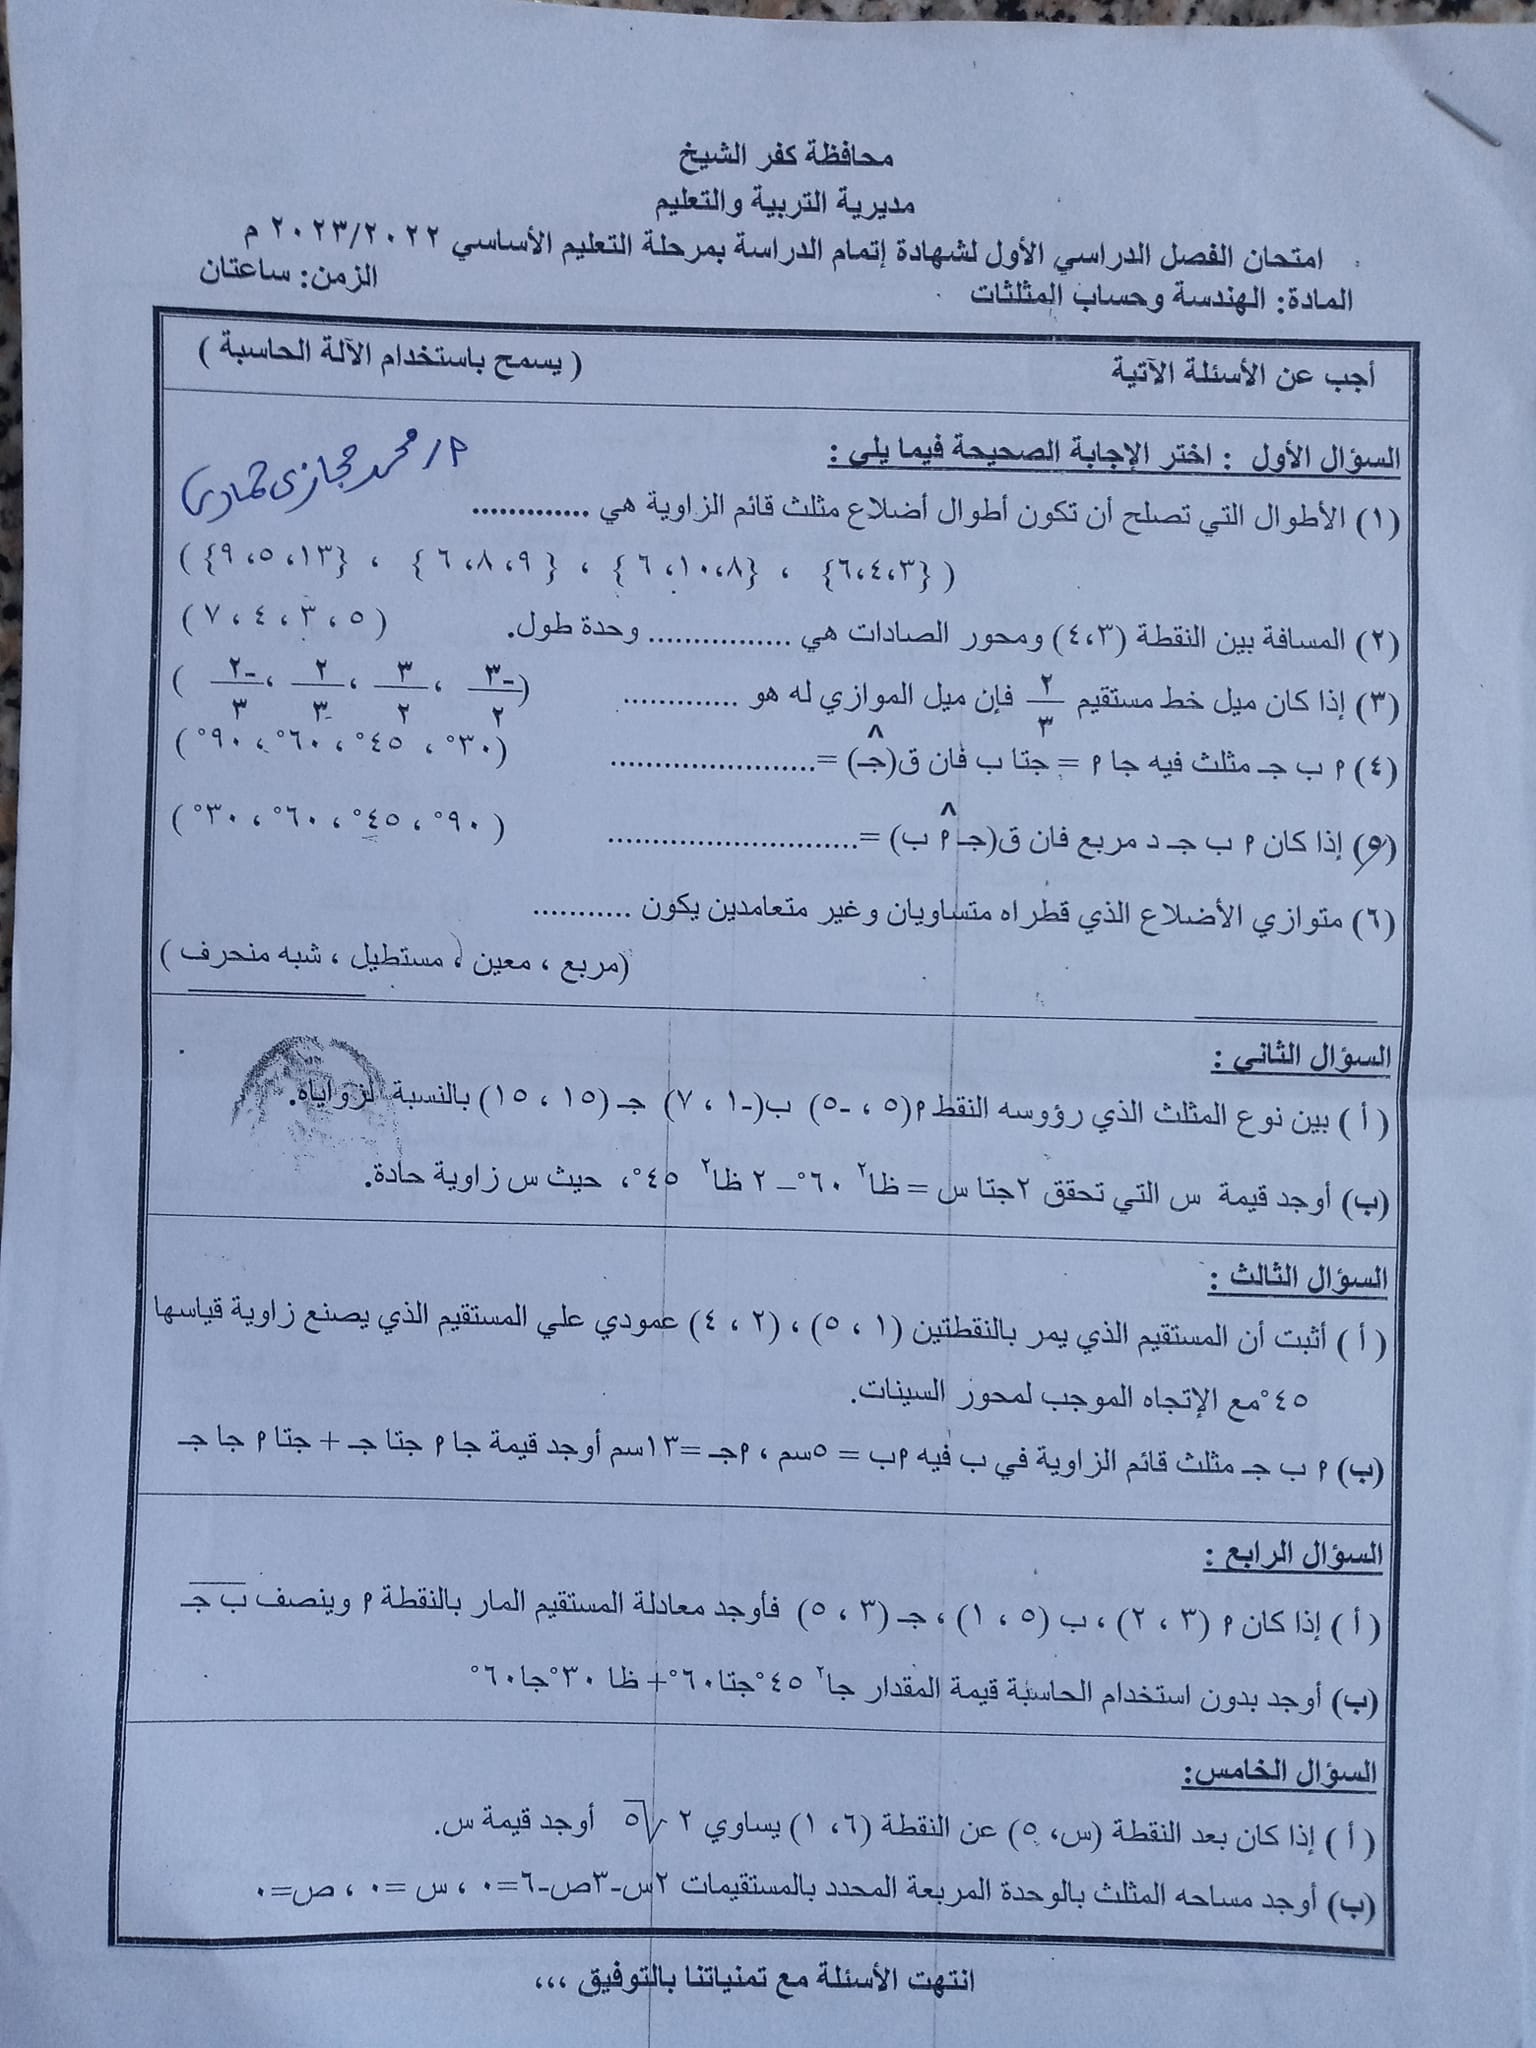 محافظة كفر الشيخ
مديرية التربية والتعليم
امتحان الفصل الدراسي الأول لشهادة إتمام الدراسة بمرحلة التعليم الأساسي ٢٠٢٣/٢٠٢٢ م
المادة: الهندسة وحساب المثلثات الزمن: ساعتان
أجب عن الأسئلة الآتية ( يسمح باستخدام الآلة الحاسبة )
السؤال الأول : اختر الإجابة الصحيحة فيما يلي :
م/ محمد حجازى حمادى
(١) الأطوال التي تصلح أن تكون أطوال أضلاع مثلث قائم الزاوية هي .............
( {٦،٤،٣} ، {٦،١٠،٨} ، {٦،٨،٩} ، {٩،٥،١٣} )
(٢) المسافة بين النقطة (٤،٣) ومحور الصادات هي ................ وحدة طول. ( ٧ ، ٤ ، ٣ ، ٥ )
(٣) إذا كان ميل خط مستقيم ٢/٣ فإن ميل الموازي له هو ............. (-٣/٢ ، ٣/٢ ، ٢/٣ ، -٢/٣ )
(٤) م ب جـ مثلث فيه جا م = جتا ب فان ق(جـ^) =....................... (٣٠° ، ٤٥° ، ٦٠° ، ٩٠° )
(٥) إذا كان م ب جـ د مربع فان ق(جـ م^ ب) =............................ ( ٩٠° ، ٤٥° ، ٦٠° ، ٣٠° )
(٦) متوازي الأضلاع الذي قطراه متساويان وغير متعامدين يكون ...........
(مربع ، معين ، مستطيل ، شبه منحرف )
السؤال الثاني :
( أ ) بين نوع المثلث الذي رؤوسه النقط م(٥ ، -٥) ب(-١ ، ٧) جـ (١٥ ، ١٥) بالنسبة لزواياه.
(ب) أوجد قيمة س التي تحقق ٢جتا س = ظا² ٦٠° – ٢ ظا² ٤٥°، حيث س زاوية حادة.
السؤال الثالث :
( أ ) أثبت أن المستقيم الذي يمر بالنقطتين (١ ، ٥) ، (٢ ، ٤) عمودي علي المستقيم الذي يصنع زاوية قياسها
٤٥° مع الإتجاه الموجب لمحور السينات.
(ب) م ب جـ مثلث قائم الزاوية في ب فيه مب = ٥سم ، مجـ =١٣سم أوجد قيمة جا م جتا جـ + جتا م جا جـ
السؤال الرابع :
( أ ) إذا كان م (٣ ، ٢) ، ب (٥ ، ١) ، جـ (٣ ، ٥) فأوجد معادلة المستقيم المار بالنقطة م وينصف ب جـ
(ب) أوجد بدون استخدام الحاسبة قيمة المقدار جا² ٤٥°جتا٦٠°+ ظا ٣٠°جا٦٠°
السؤال الخامس:
( أ ) إذا كان بعد النقطة (س، ٥) عن النقطة (٦، ١) يساوي ٢√٥ أوجد قيمة س.
(ب) أوجد مساحه المثلث بالوحدة المربعة المحدد بالمستقيمات ٢س-٣ص-٦=٠ ، س =٠ ، ص=٠
انتهت الأسئلة مع تمنياتنا بالتوفيق ،،،